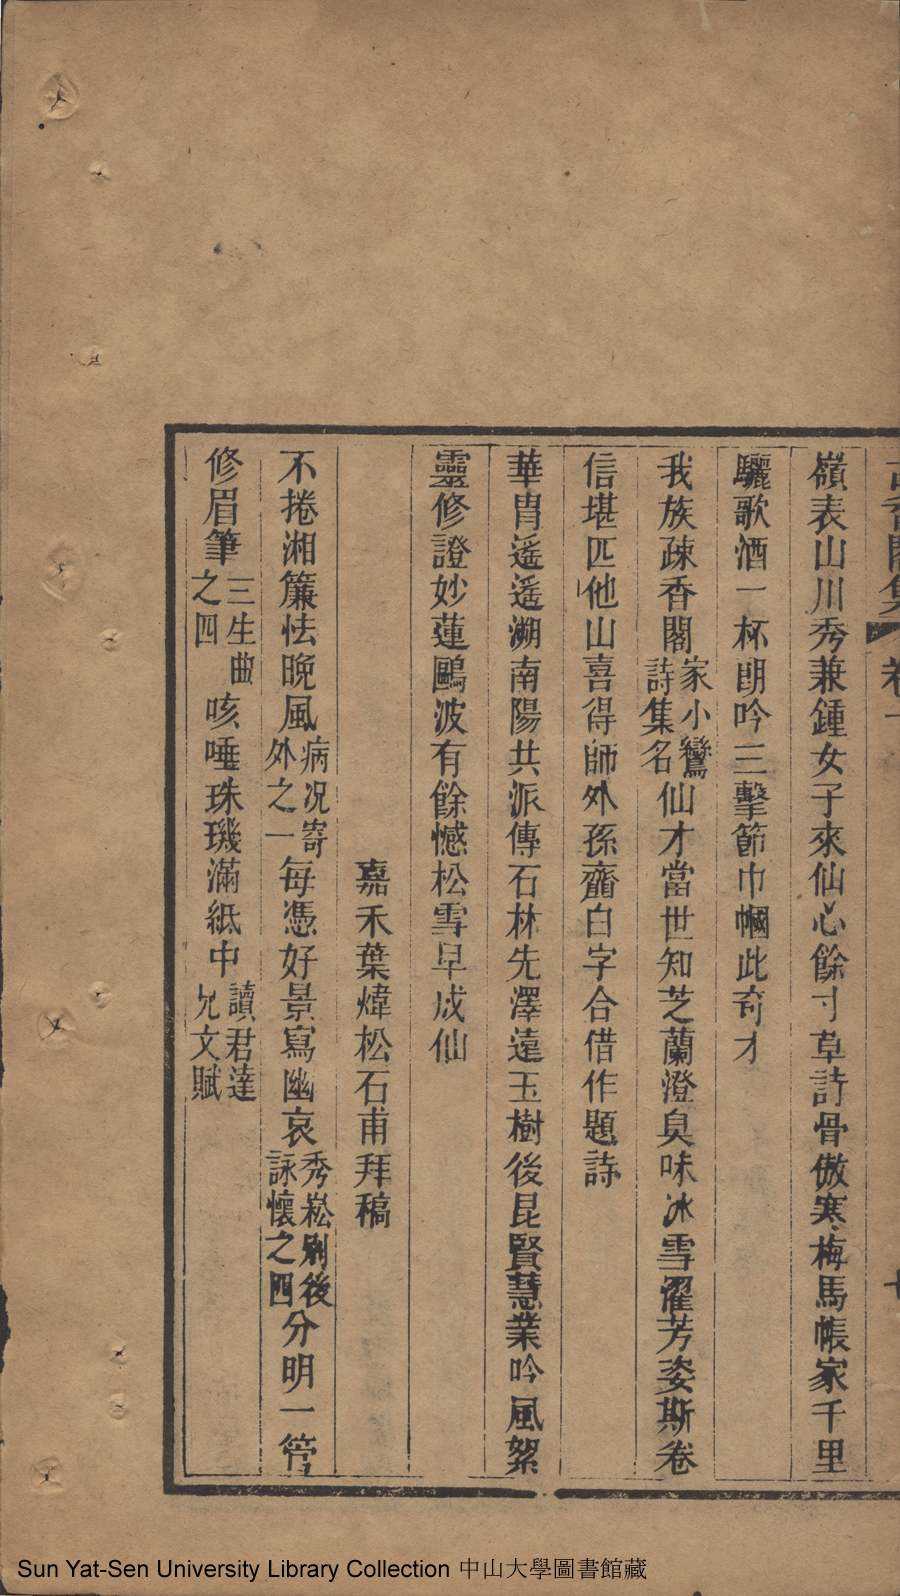 古香閣集 卷一
嶺表山川秀兼鍾女子來仙心餘寸草詩骨傲寒梅馬帳家千里
驪歌酒一杯朗吟三擊節巾幗此奇才
我族疎香閣家小鸞詩集名仙才當世知芝蘭澄臭味冰雪濯芳姿斯卷
信堪匹他山喜得師外孫虀臼字合借作題詩
華胄遥遥溯南陽共派傳石林先澤遠玉樹後昆賢慧業吟風絮
靈修證妙蓮鷗波有餘憾松雪早成仙
嘉禾葉煒松石甫拜稿
不捲湘簾怯晚風病况寄外之一每憑好景寫幽哀秀崧別後詠懷之四分明一管
修眉筆三生曲之四咳唾珠璣滿紙中讀君達兄文賦
Sun Yat-Sen University Library Collection 中山大學圖書館藏